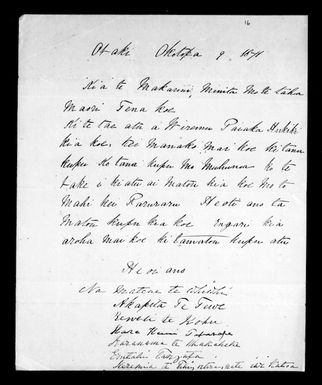 16
Otaki Okotopa 9 1871
Kia te Makarini, Minita Mo te taha
Maori Tena koe
Ki te tae atu a Wiremu Paiaka
kia koe, kei manako mai koe ki tana
kupu Ko tana kupu mo Muhunoa ko te
take i kiatu ai Matou kia koe Mo te
Mahi hei Raruraru Heoti ano ta
Matou kupu kia koe Engari kia
aroha mai koe ki tamatou kupu atu
Heoi ano
Na Matene te
Akapita Te Tewe
te Kohu
Hara
Karanama te